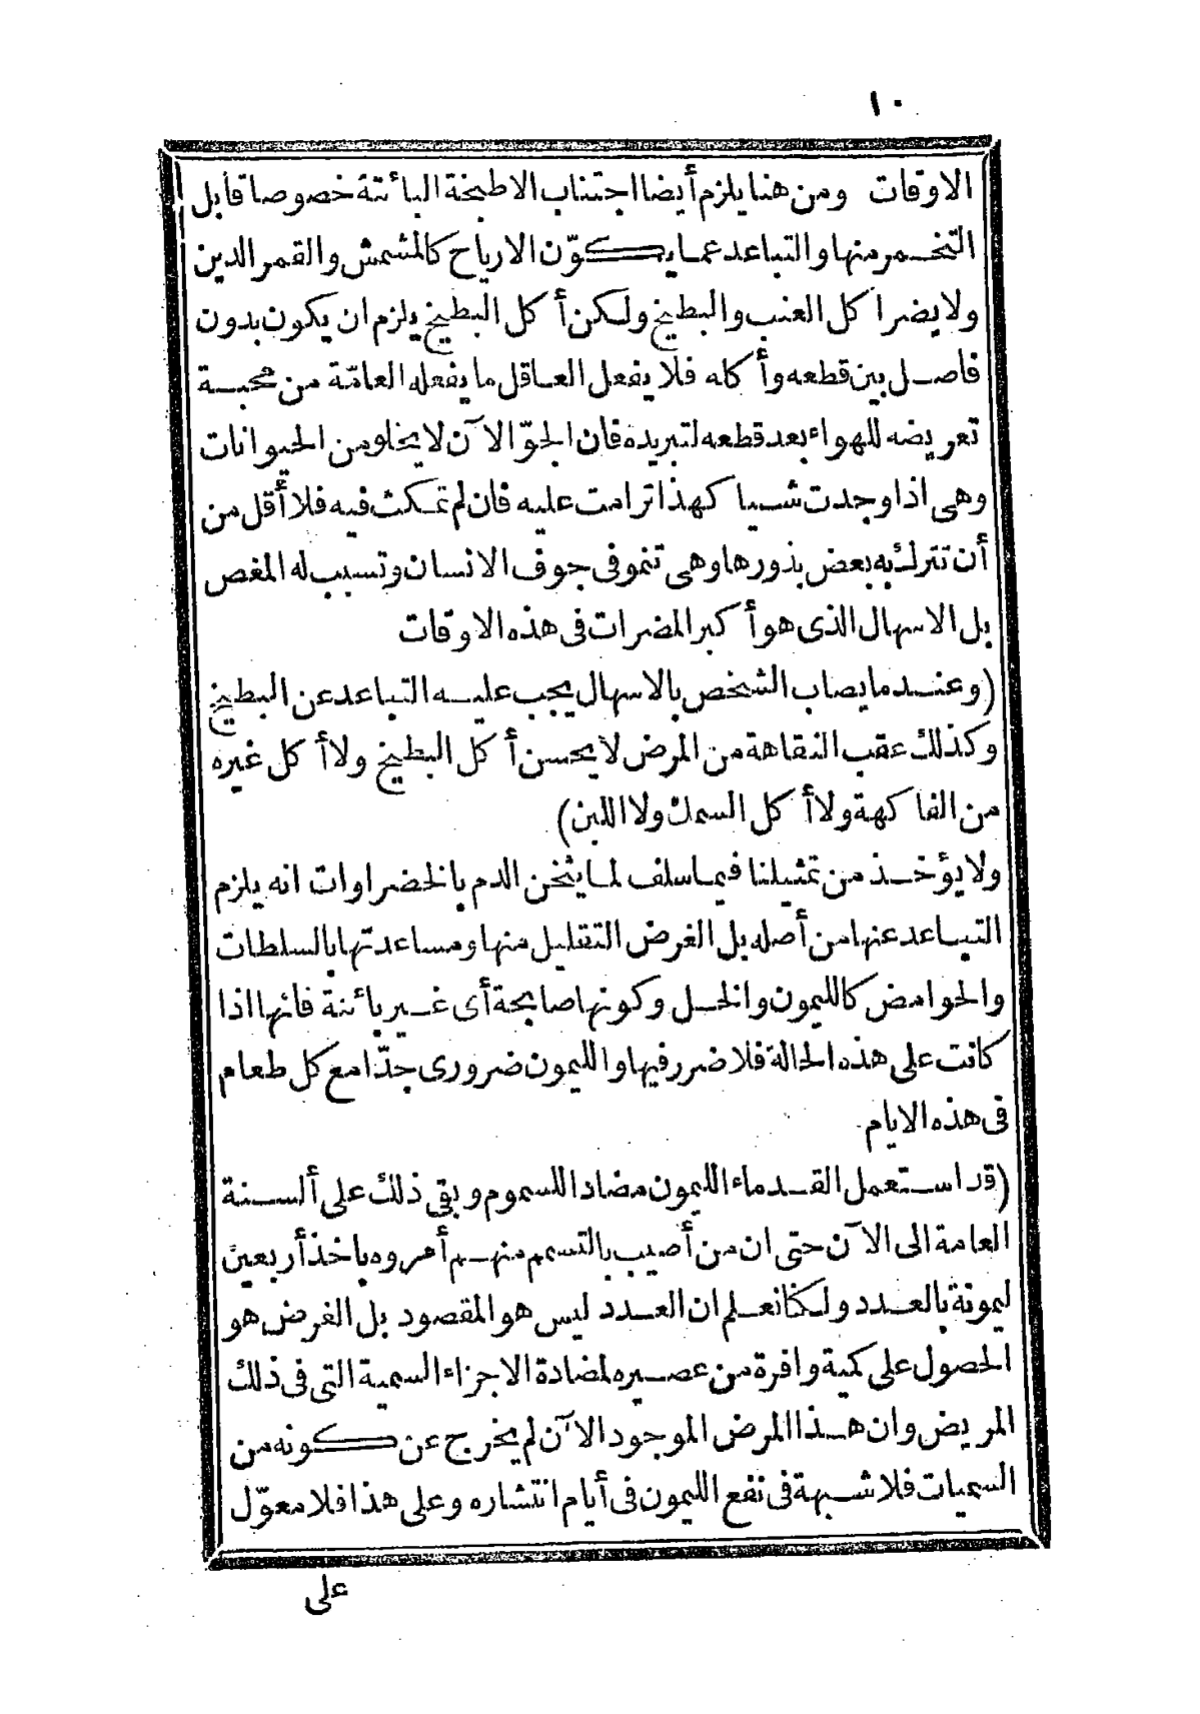 ١٠
الاوقات ومن هنا يلزم أيضا اجتناب الاطبخة البائتة خصوصا قابل
التخمر منها والتباعد عما يكوّن الارياح كالمشمش والقمر الدين
ولا يضر اكل العنب والبطيخ ولكن أكل البطيخ يلزم ان يكون بدون
فاصل بين قطعه وأكله فلا يفعل العاقل ما يفعله العامّة من محبة
تعريضه للهواء بعد قطعه لتبريده فان الجوّ الآن لا يخلو من الحيوانات
وهى اذا وجدت شيا كهذا ترامت عليه فان لم تمكث فيه فلا أقل من
أن تترك به بعض بذورها وهى تنمو فى جوف الانسان وتسبب له المغص
بل الاسهال الذى هو أكبر المضرات فى هذه الاوقات
(وعند ما يصاب الشخص بالاسهال يجب عليه التباعد عن البطيخ
وكذلك عقب النقاهة من المرض لا يحسن أكل البطيخ ولا أكل غيره
من الفاكهة ولا أكل السمك ولا اللبن)
ولا يؤخذ من تمثيلنا فيما سلف لما يثخن الدم بالخضراوات انه يلزم
التباعد عنها من أصله بل الغرض التقليل منها ومساعدتها بالسلطات
والحوامض كالليمون والخل وكونها صابحة أى غير بائتة فانها اذا
كانت على هذه الحالة فلا ضرر فيها والليمون ضرورى جدّا مع كل طعام
فى هذه الايام
(قد استعمل القدماء الليمون مضادا للسموم وبقى ذلك على ألسنة
العامة الى الآن حتى ان من أصيب بالتسمم منهم أمروه باخذ أربعين
ليمونة بالعدد ولكنا نعلم ان العدد ليس هو المقصود بل الغرض هو
الحصول على كمية وافرة من عصيره لمضادة الاجزاء السمية التى فى ذلك
المريض وان هذا المرض الموجود الآن لم يخرج عن كونه من
السميات فلا شبهة فى نفع الليمون فى أيام انتشاره وعلى هذا فلا معوّل
على